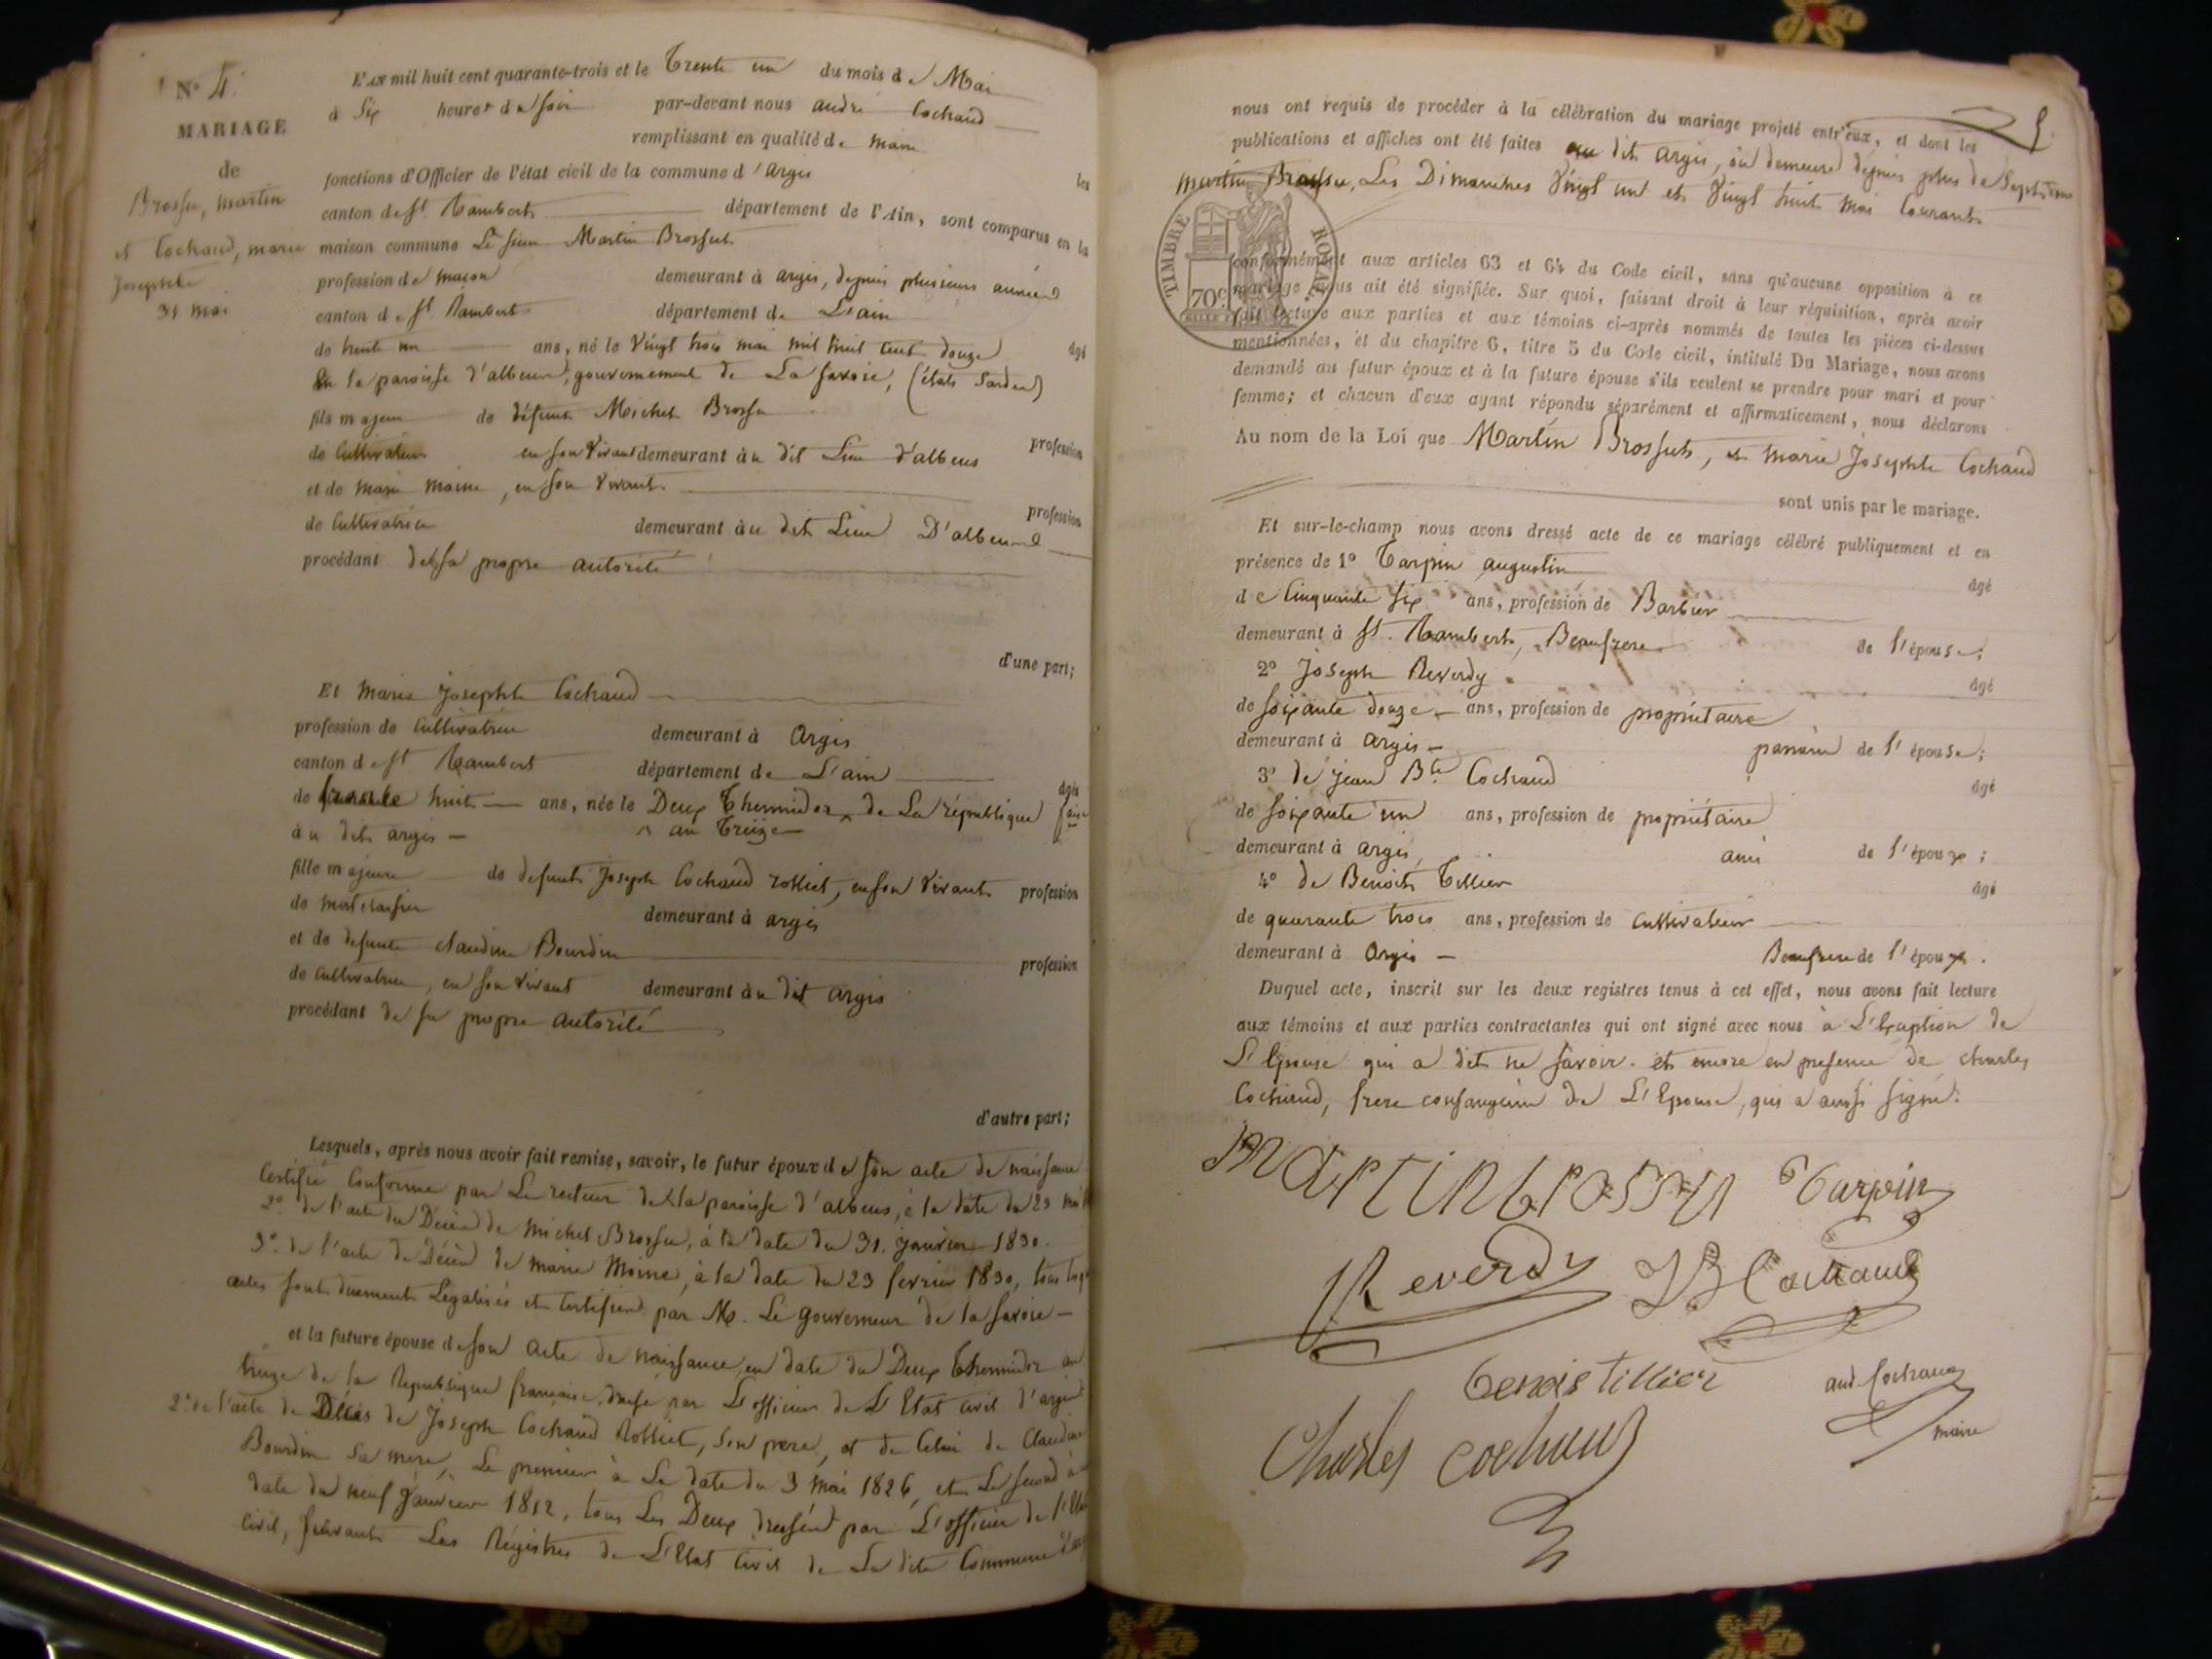 N° 4.
MARIAGE
de
Brossu, martin
et Cochaud, marie
Josephte
31 mai
L'AN mil huit cent quarante-trois et le Trente un du mois de Mai
à Six heures du soir par-devant nous andré Cochaud
remplissant en qualité de maire les
fonctions d'Officier de l'état civil de la commune d'argis
canton de St. Rambert département de l'Ain, sont comparus en la
maison commune Le sieur Martin Brossut
profession de maçon demeurant à argis, depuis plusieurs années
canton de St. Rambert département de L'ain
de trente un ans, né le Vingt trois mai mil huit cent douze âgé
En la paroisse d'albens, gouvernement de La Savoie, (états Sardes)
fils majeur de défunt Michel Brossu
profession
de Cultivateur en son Vivant demeurant au dit Lieu d'albens
et de marie moine, en son Vivant
profession
de Cultivatrice demeurant au dit Lieu D'albens
procédant de sa propre autorité
d'une part;
Et marie Josephte Cochaud
profession de Cultivatrice demeurant à Argis
canton de St Rambert département de L'ain
âgée
de trente huit ans, née le Deux Thermidor de La république
an Treize
au dit argis
fille majeure de defunt Joseph Cochaud rolliet, en son Vivant profession
de demeurant à argis
et de defunte claudine Bourdin profession
de Cultivatrice, en son Vivant demeurant au dit argis
procédant de sa propre autorité
d'autre part;
Lesquels, après nous avoir fait remise, savoir, le futur époux de son acte de naissance
Certifié Conforme par Le recteur de la paroisse d'albens, à la date du 23 mai
2° de l'acte du Décès de michel Brossu, à la date du 31. janvier 1830.
3° de l'acte de Décès de marie Moine, à la date du 23 fevrier 1830, tous
actes sont duement Légalisés et Certifiés par M. Le gouverneur de la Savoie
et la future épouse de son acte de naissance en date du Deux Thermidor an
treize de la Republique française, dressé par L'officier de L'Etat Civil d'argis
2° de l'acte de Décès de Joseph Cochaud Rolliet, son pere, et de Celui de Claudine
Bourdin Sa mere, Le premier à La date du 3 mai 1826, et Le second à
date du neuf Janvier 1812, tous Les Deux dressés par L'officier de l'Etat
Civil, suivant Les Régistres de L'Etat Civil de La dite Commune
5.
nous ont requis de procéder à la célébration du mariage projeté entr'eux, et dont les
publications et affiches ont été faites au dit argis, où demeure depuis plus de
martin Brossu, Les Dimanches Vingt un et Vingt huit mai Courant
TIMBRE ROYAL
70c
conformément aux articles 63 et 64 du Code civil, sans qu'aucune opposition à ce
mariage nous ait été signifiée. Sur quoi, faisant droit à leur réquisition, après avoir
fait lecture aux parties et aux témoins ci-après nommés de toutes les pièces ci-dessus
mentionnées, et du chapitre 6, titre 5 du Code civil, intitulé Du Mariage, nous avons
demandé au futur époux et à la future épouse s'ils veulent se prendre pour mari et pour
femme; et chacun d'eux ayant répondu séparément et affirmativement, nous déclarons
Au nom de la Loi que Martin Brossut, et marie Josephte Cochaud
sont unis par le mariage.
Et sur-le-champ nous avons dressé acte de ce mariage célébré publiquement et en
présence de 1° Tarpin augustin
âgé
de Cinquante six ans, profession de Barbier
demeurant à St. Rambert, Beaufrere de l'épouse;
2° Joseph Reverdy âgé
de soixante douze ans, profession de propriétaire
demeurant à argis parrain de l'épouse;
3° de jean Bte Cochaud âgé
de soixante un ans, profession de propriétaire
demeurant à argis, ami de l'époux;
4° de Benoit Tillier âgé
de quarante trois ans, profession de Cultivateur
demeurant à Argis Beaufrere de l'époux.
Duquel acte, inscrit sur les deux registres tenus à cet effet, nous avons fait lecture
aux témoins et aux parties contractantes qui ont signé avec nous à L'Exception de
L'Epouse qui a dit ne savoir. et encore en presence de charles
Cochaud, frere consanguin de L'Epouse, qui a aussi signé.
Martin brossu Tarpin
J Reverdy J B Cochaud
benois tillier and. Cochaud
maire
Charles cochaud